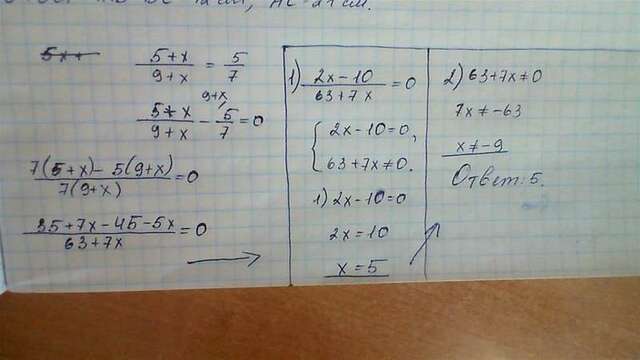 BC 12 см, AC = 21 см.
5x+
\frac{5+x}{9+x} = \frac{5}{7}
9+x
\frac{5+x}{9+x} - \frac{5}{7} = 0
\frac{7(5+x) - 5(9+x)}{7(9+x)} = 0
\frac{35+7x-45-5x}{63+7x} = 0
1) \frac{2x-10}{63+7x} = 0
2x-10=0,
63+7x≠0.
1) 2x-10=0
2x=10
x=5
2) 63+7x≠0
7x≠-63
x≠-9
Ответ: 5.